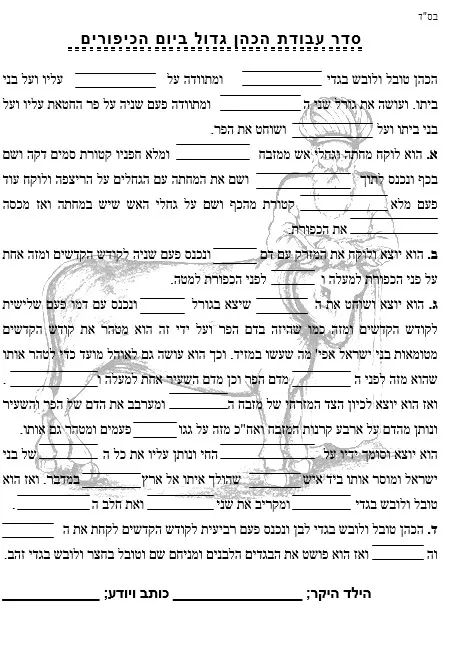 בס"ד
סדר עבודת הכהן גדול ביום הכיפורים
הכהן טובל ולובש בגדי ________ ומתוודה על ________ עליו ועל בני
ביתו. ועושה את גורל שני ה________ ומתוודה פעם שניה על פר החטאת עליו ועל
בני ביתו ועל ________ ושוחט את הפר.
א. הוא לוקח מחתה וגחלי אש ממזבח ________ ומלא חפניו קטורת סמים דקה ושם
בכף ונכנס לתוך ________ ושם את המחתה עם הגחלים על הריצפה ולוקח עוד
פעם מלא ________ קטורת מהכף ושם על גחלי האש שיש במחתה ואז מכסה
________ את הכפורת.
ב. הוא יוצא ולוקח את המזרק עם דם ________ ונכנס פעם שניה לקודש הקדשים ומזה אחת
על פני הכפורת למעלה ו ________ לפני הכפורת למטה.
ג. הוא יוצא ושוחט את ה ________ שיצא בגורל ________ ונכנס עם דמו פעם שלישית
לקודש הקדשים ומזה כמו שהיזה בדם הפר ועל ידי זה הוא מטהר את קודש הקדשים
מטומאות בני ישראל אפי' מה שעשו במזיד. וכך הוא עושה גם לאוהל מועד כדי לטהר אותו
שהוא מזה לפני ה ________ מדם הפר וכן מדם השעיר אחת למעלה ו________ .
ואז הוא יוצא לכיון הצד המזרחי של מזבח ה________ ומערבב את הדם של הפר והשעיר
ונותן מהדם על ארבע קרנות המזבח ואח"כ מזה על גגו ________ פעמים ומטהר גם אותו.
הוא יוצא וסומך ידיו על ________ החי ונותן עליו את כל ה ________ של בני
ישראל ומוסר אותו ביד איש ________ שהולך איתו אל ארץ ________ במדבר. ואז הוא
טובל ולובש בגדי ________ ומקריב את שני ________ ואת חלב ה________ .
ד. הכהן טובל ולובש בגדי לבן ונכנס פעם רביעית לקודש הקדשים לקחת את ה ________
וה ________ ואז הוא פושט את הבגדים הלבנים ומניחם שם וטובל בחצר ולובש בגדי זהב.
הילד היקר; ________ כותב ויודע; ________